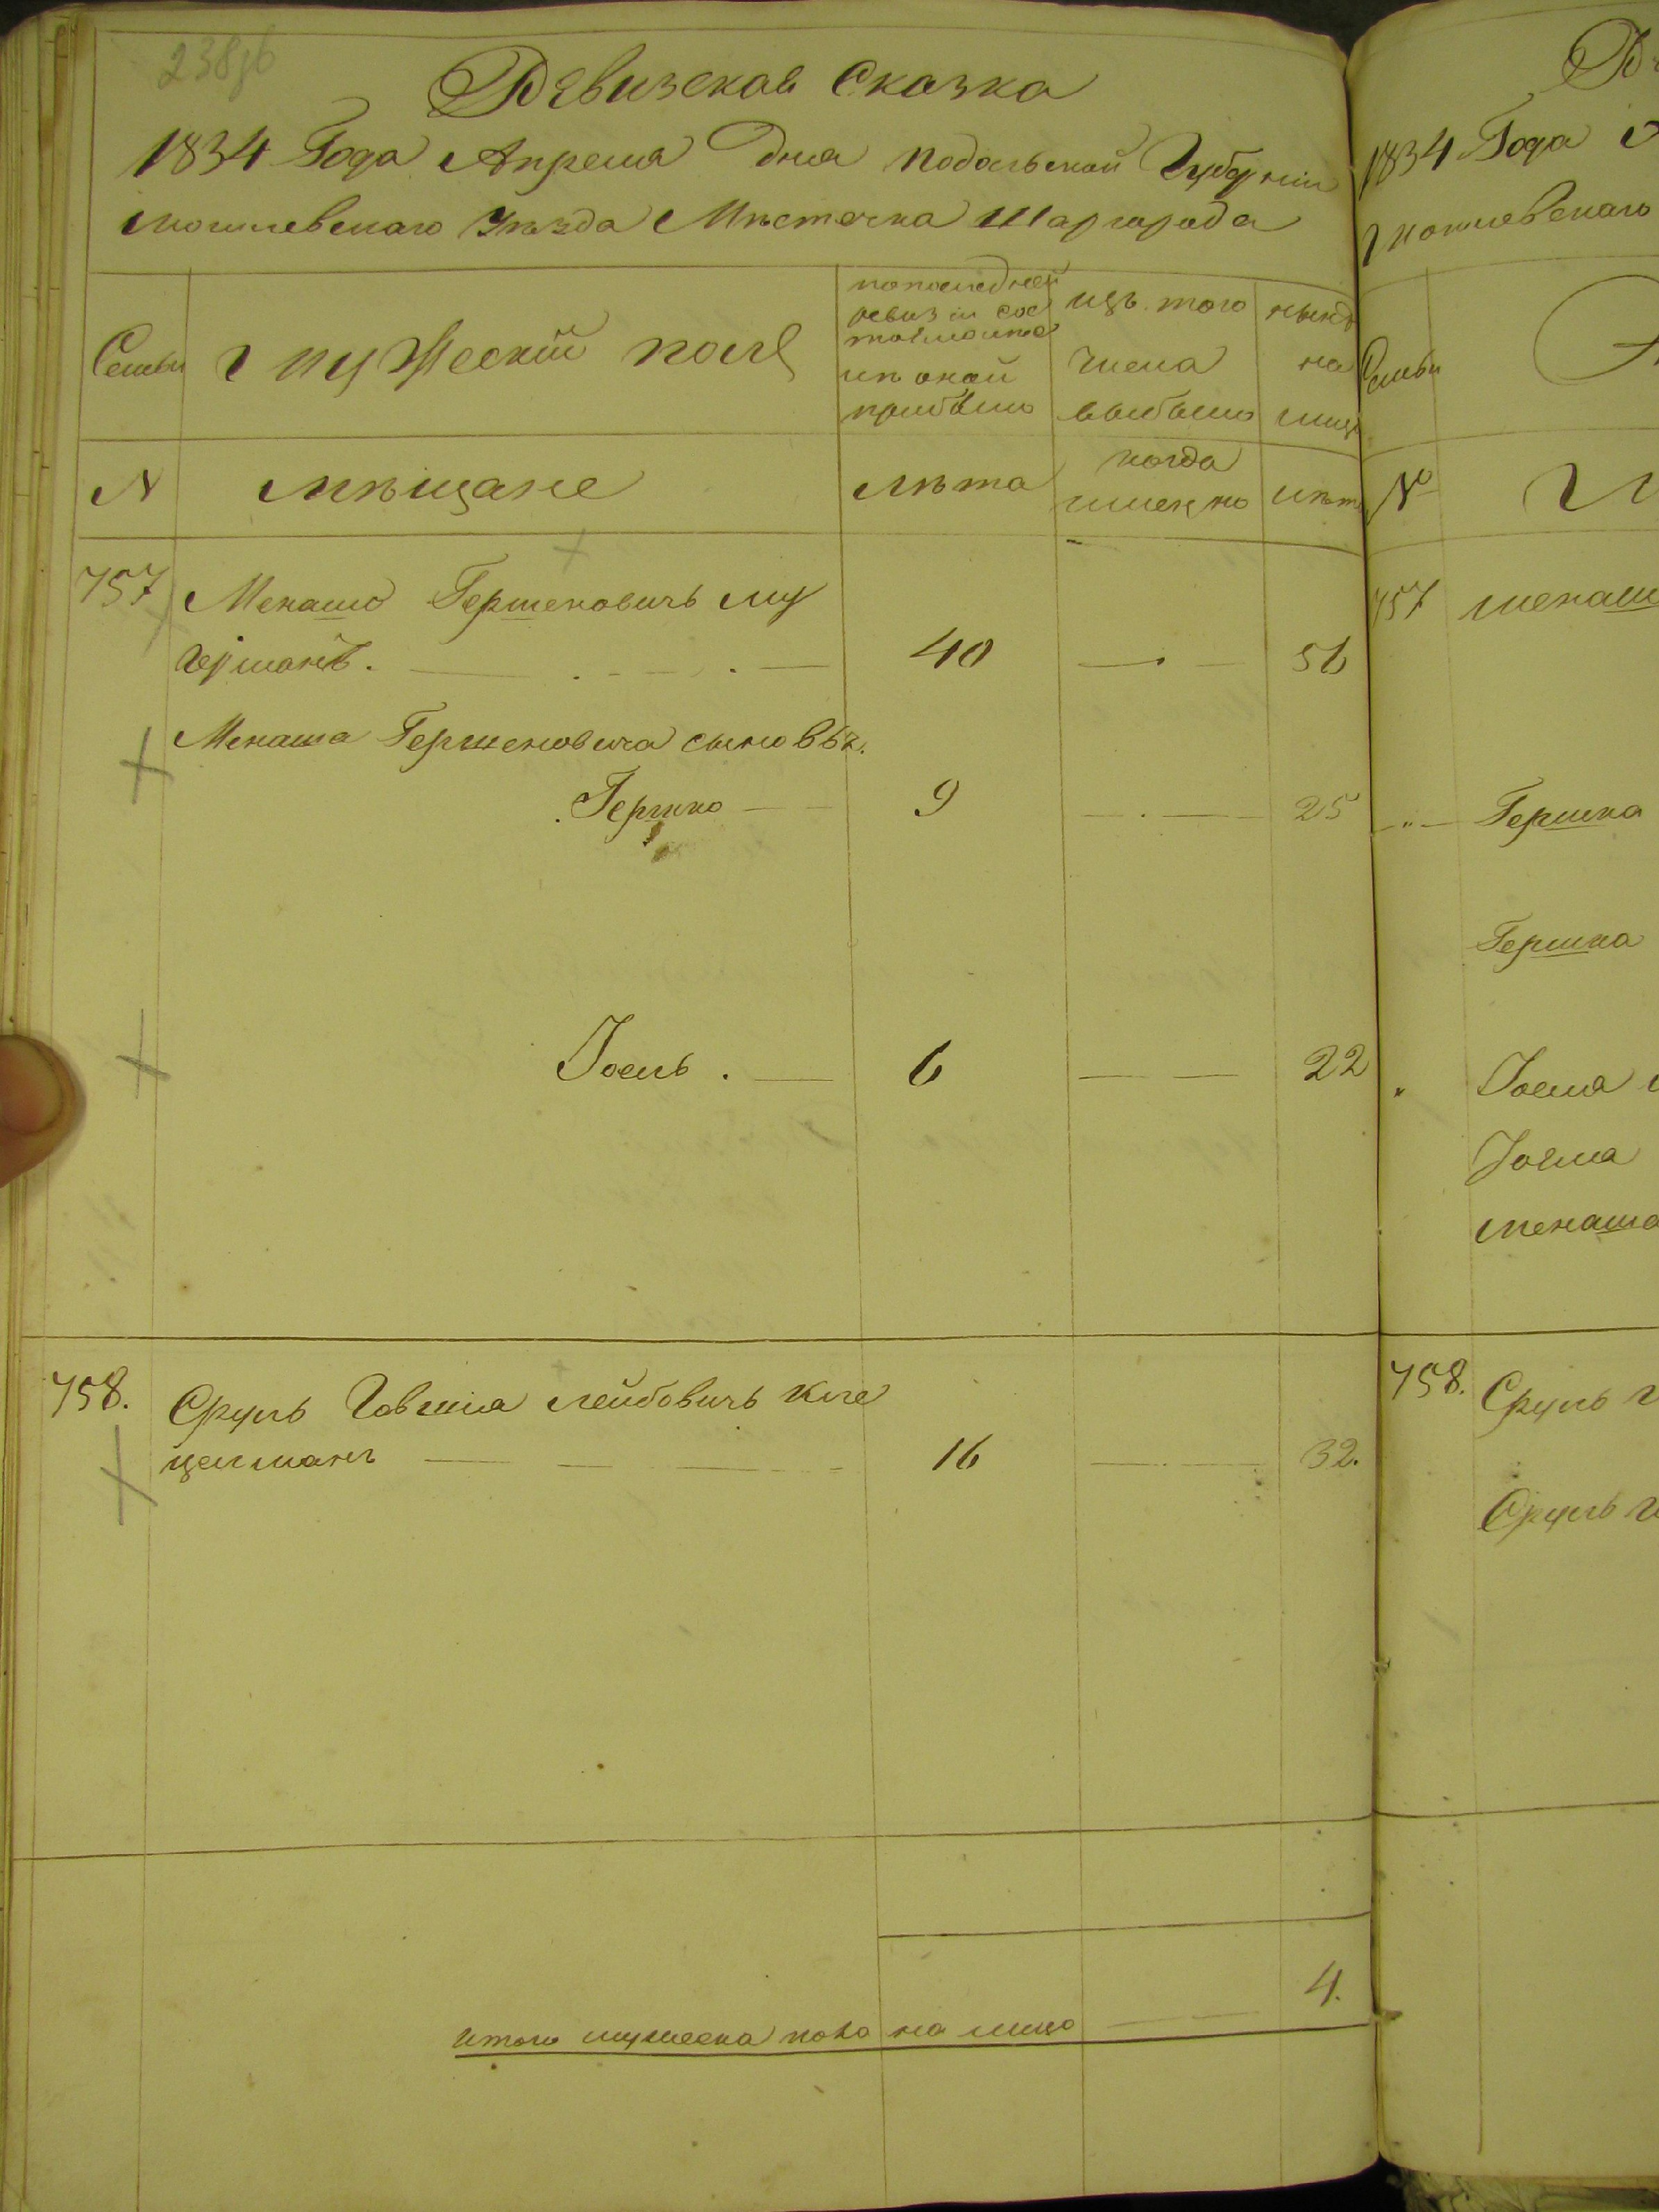 238зв
Ревизская Сказка
1834 Года Апреля Дня Подольской Губернiи
Могилевского Уѣзда Мѣстечка Шаргорода
Семьи
Мужескiй полъ
попоследней
ревизiи сос
тояло и по
оной
прибыло
изъ того
числа
выбыло
нынѣ
на
лицо
N
мѣщане
лѣта
когда
именно
лѣта
757 Менашко Гершковичъ
40 — 56
Менаша Гершковича сыновья.
Гершко — 9 — 25
Іоель. — 6 — 22
758. Сруль Говшiя Лейбовичъ Кле
цельманъ — 16 — 32.
4.
итого мужеска пола на лицо —
1834 Года
Могилевского
Семьи
№
757 Менаш
Гершка
Гершка
Іоеля
Іоеля
Менаша
758. Сруль
Сруль